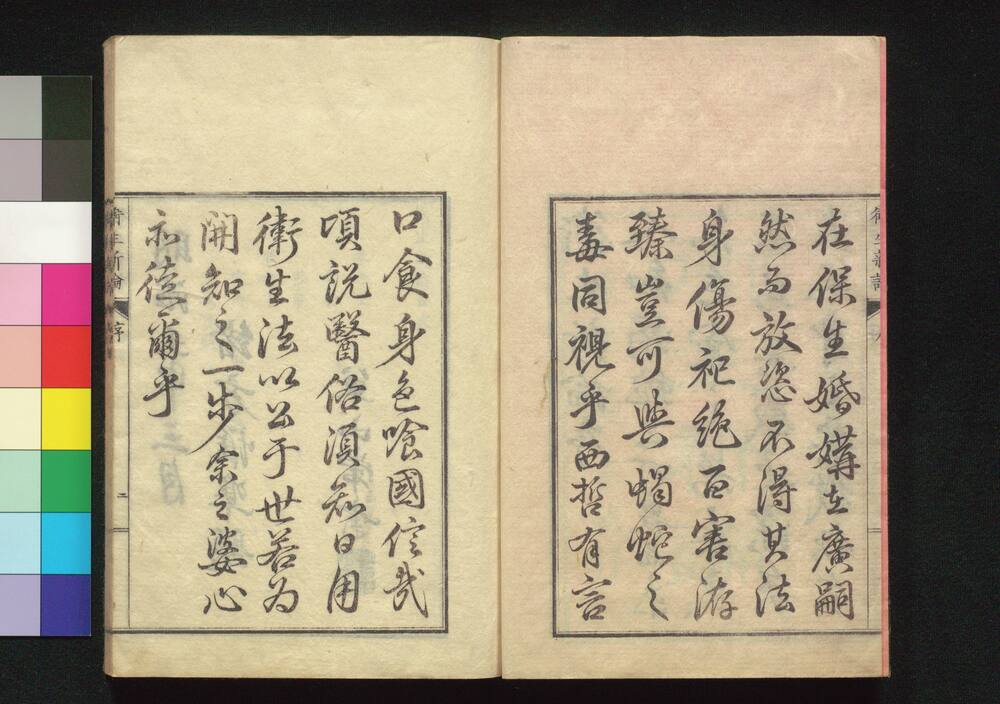 在保生婚媾在廣嗣
然而放恣不得其法
身傷祀絶百害洊
臻豈可與蝎蛇之
毒同視乎西哲有言
口食身色喰國信哉
頃説醫俗須知日用
衛生法以公于世若為
開知之一步余之婆心
亦徳爾乎
衛生新論
序
二